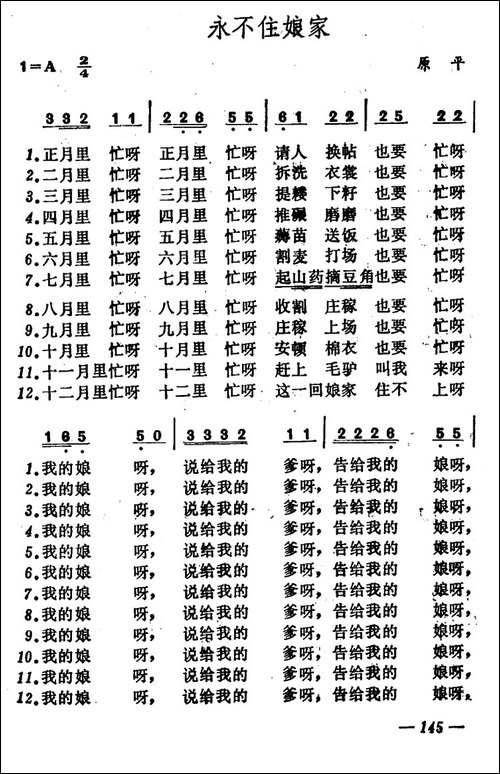 永不住娘家
1=A 2/4 原平
3 3 2 1 1 | 2 2 6 5 5 | 6 1 2 2 | 2 5 2 2 |
1.正月里 忙呀 正月里 忙呀 请人 换帖 也要 忙呀
2.二月里 忙呀 二月里 忙呀 拆洗 衣裳 也要 忙呀
3.三月里 忙呀 三月里 忙呀 提耧 下籽 也要 忙呀
4.四月里 忙呀 四月里 忙呀 推碾 磨磨 也要 忙呀
5.五月里 忙呀 五月里 忙呀 薅苗 送饭 也要 忙呀
6.六月里 忙呀 六月里 忙呀 割麦 打场 也要 忙呀
7.七月里 忙呀 七月里 忙呀 起山药摘豆角也要 忙呀
8.八月里 忙呀 八月里 忙呀 收割 庄稼 也要 忙呀
9.九月里 忙呀 九月里 忙呀 庄稼 上场 也要 忙呀
10.十月里 忙呀 十月里 忙呀 安顿 棉衣 也要 忙呀
11.十一月里忙呀 十一里 忙呀 赶上 毛驴 叫我 来呀
12.十二月里忙呀 十二里 忙呀 这一回娘家 住不 上呀
1 6 5 5 0 | 3 3 3 2 1 1 | 2 2 2 6 5 5 |
1.我的娘 呀，说给我的 爹呀，告给我的 娘呀，
2.我的娘 呀，说给我的 爹呀，告给我的 娘呀，
3.我的娘 呀，说给我的 爹呀，告给我的 娘呀，
4.我的娘 呀，说给我的 爹呀，告给我的 娘呀，
5.我的娘 呀，说给我的 爹呀，告给我的 娘呀，
6.我的娘 呀，说给我的 爹呀，告给我的 娘呀，
7.我的娘 呀，说给我的 爹呀，告给我的 娘呀，
8.我的娘 呀，说给我的 爹呀，告给我的 娘呀，
9.我的娘 呀，说给我的 爹呀，告给我的 娘呀，
10.我的娘 呀，说给我的 爹呀，告给我的 娘呀，
11.我的娘 呀，说给我的 爹呀，告给我的 娘呀，
12.我的娘 呀，说给我的 爹呀，告给我的 娘呀，
— 145 —